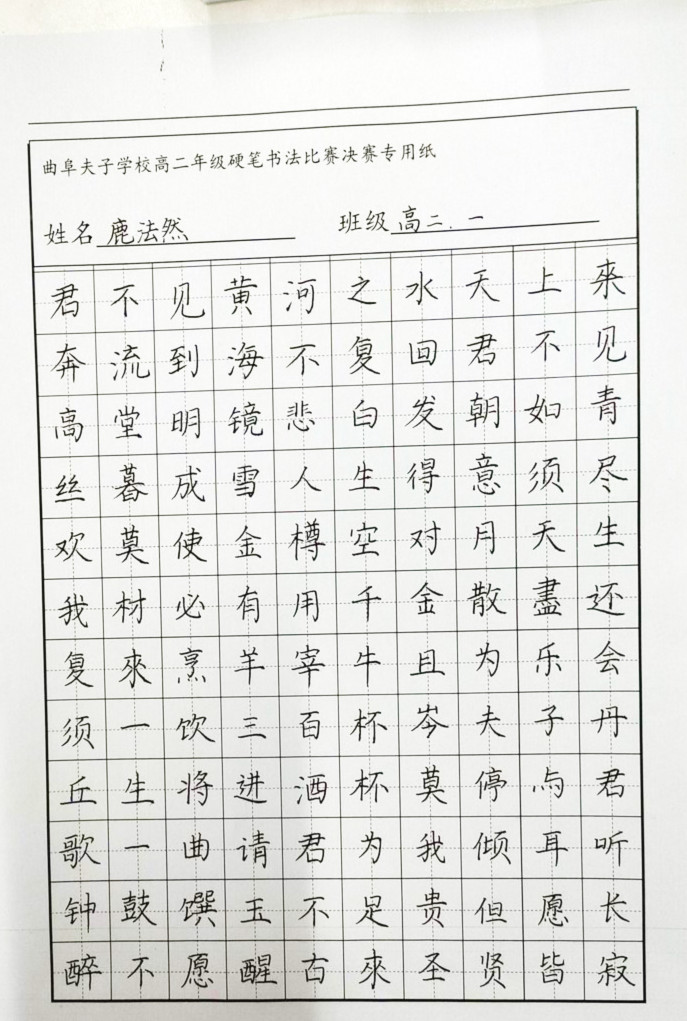 曲阜夫子学校高二年级硬笔书法比赛决赛专用纸
姓名 鹿法然 班级 高二.一
君不见黄河之水天上來
奔流到海不复回君不见
高堂明镜悲白发朝如青
丝暮成雪人生得意须尽
欢莫使金樽空对月天生
我材必有用千金散盡还
复來烹羊宰牛且为乐会
须一饮三百杯岑夫子丹
丘生将进酒杯莫停与君
歌一曲请君为我倾耳听
钟鼓馔玉不足贵但愿长
醉不愿醒古來圣贤皆寂